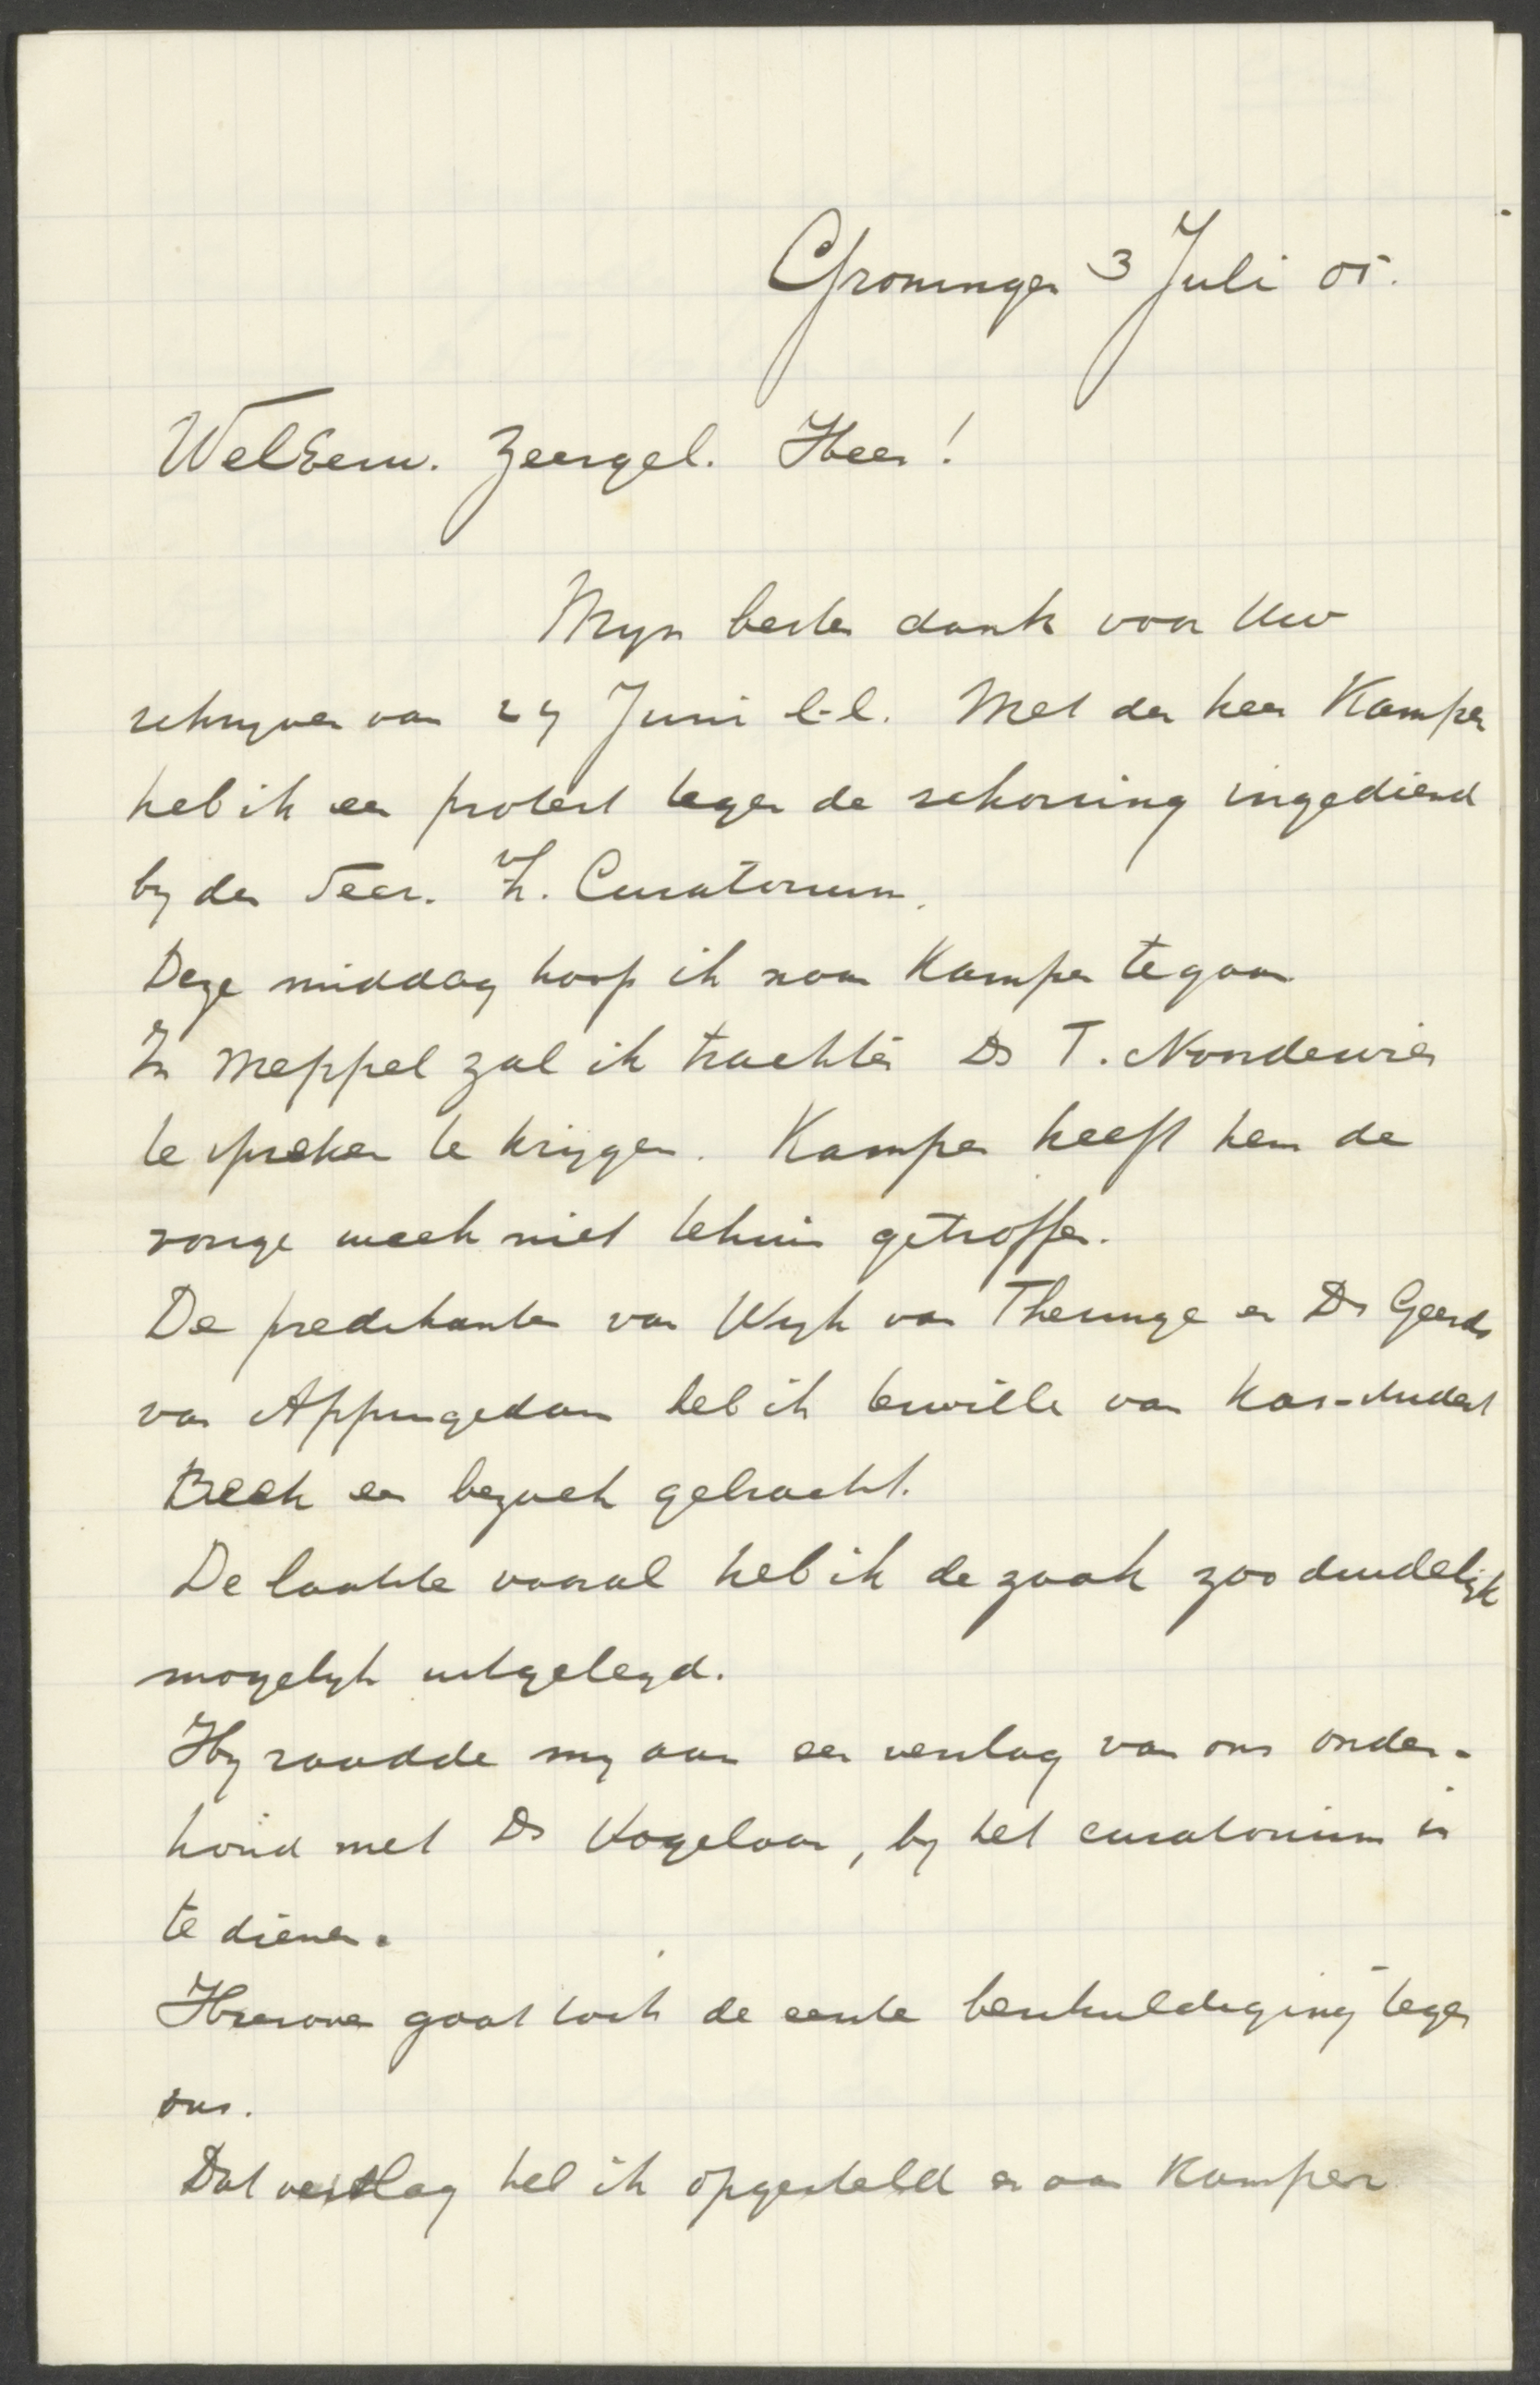 Groningen 3 Juli 05.
WelEerw. Zeergel. Heer!
Mijn besten dank voor Uw
schrijven van 29 Juni l.l. Met den heer Kamper
heb ik een protest tegen de schorsing ingediend
bij den Secr. v/h. Curatorium.
Deze middag hoop ik naar Kampen te gaan
In Meppel zal ik trachten Ds T. Noordewier
te spreken te krijgen. Kamper heeft hem de
vorige week niet tehuis getroffen.
De predikanten van Wijk van Thesinge en Ds Geerds
van Appingedam heb ik terwille van Kas-student
Beek een bezoek gebracht.
De laatste vooral heb ik de zaak zoo duidelijk
mogelijk uitgelegd.
Hij raadde mij aan een verslag van ons onder-
houd met Ds Vogelaar, bij het curatorium in
te dienen.
Hierover gaat toch de eerste beschuldiging tegen
ons.
Dat verslag heb ik opgesteld en aan Kamper